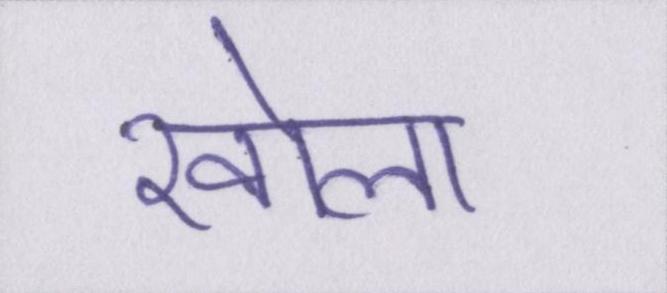 खोला